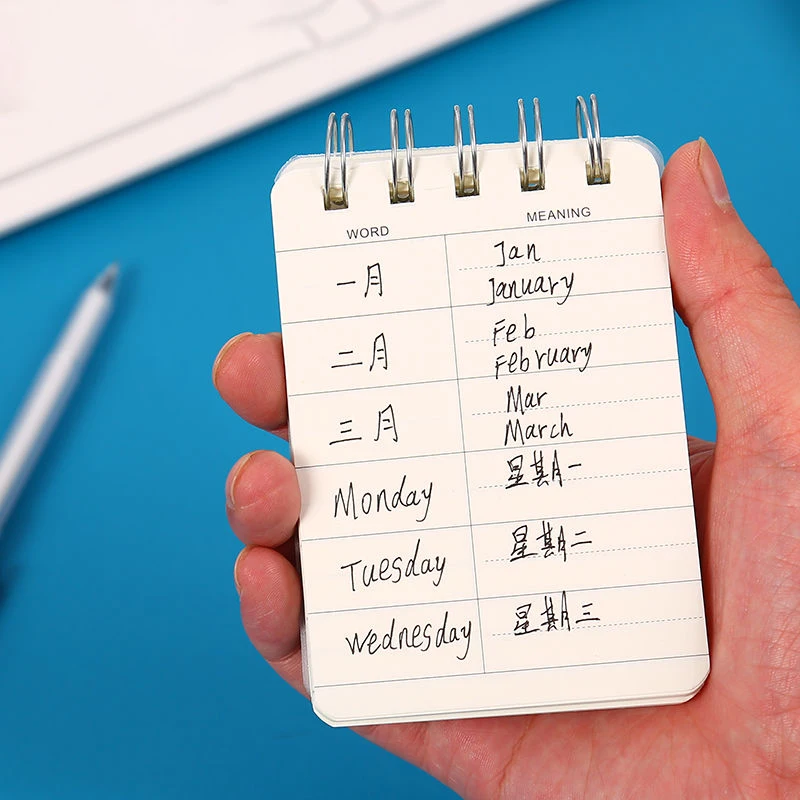 WORD MEANING
一月 Jan
January
二月 Feb
February
三月 Mar
March
Monday 星期一
Tuesday 星期二
Wednesday 星期三